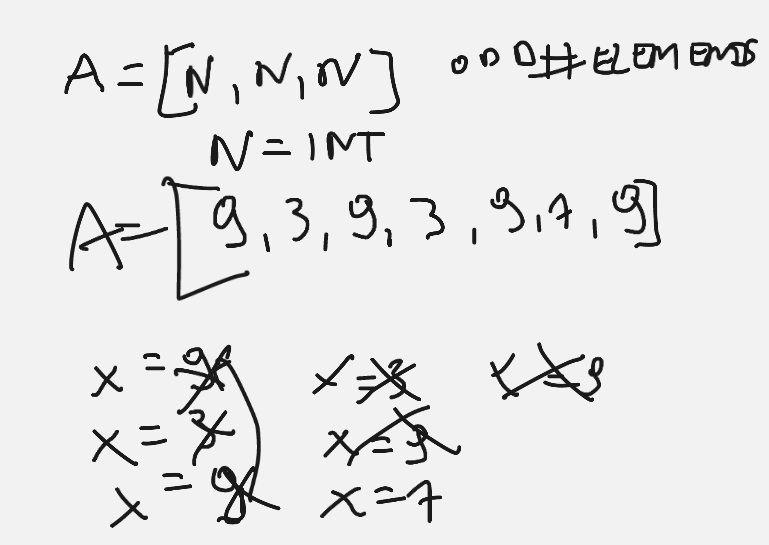 A = [N, N, N] ODD # ELEMENTS
N = INT
A = [9, 3, 9, 3, 9, 7, 9]
x = 9 x = 3 x = 9
x = 3 x = 9
x = 9 x = 7